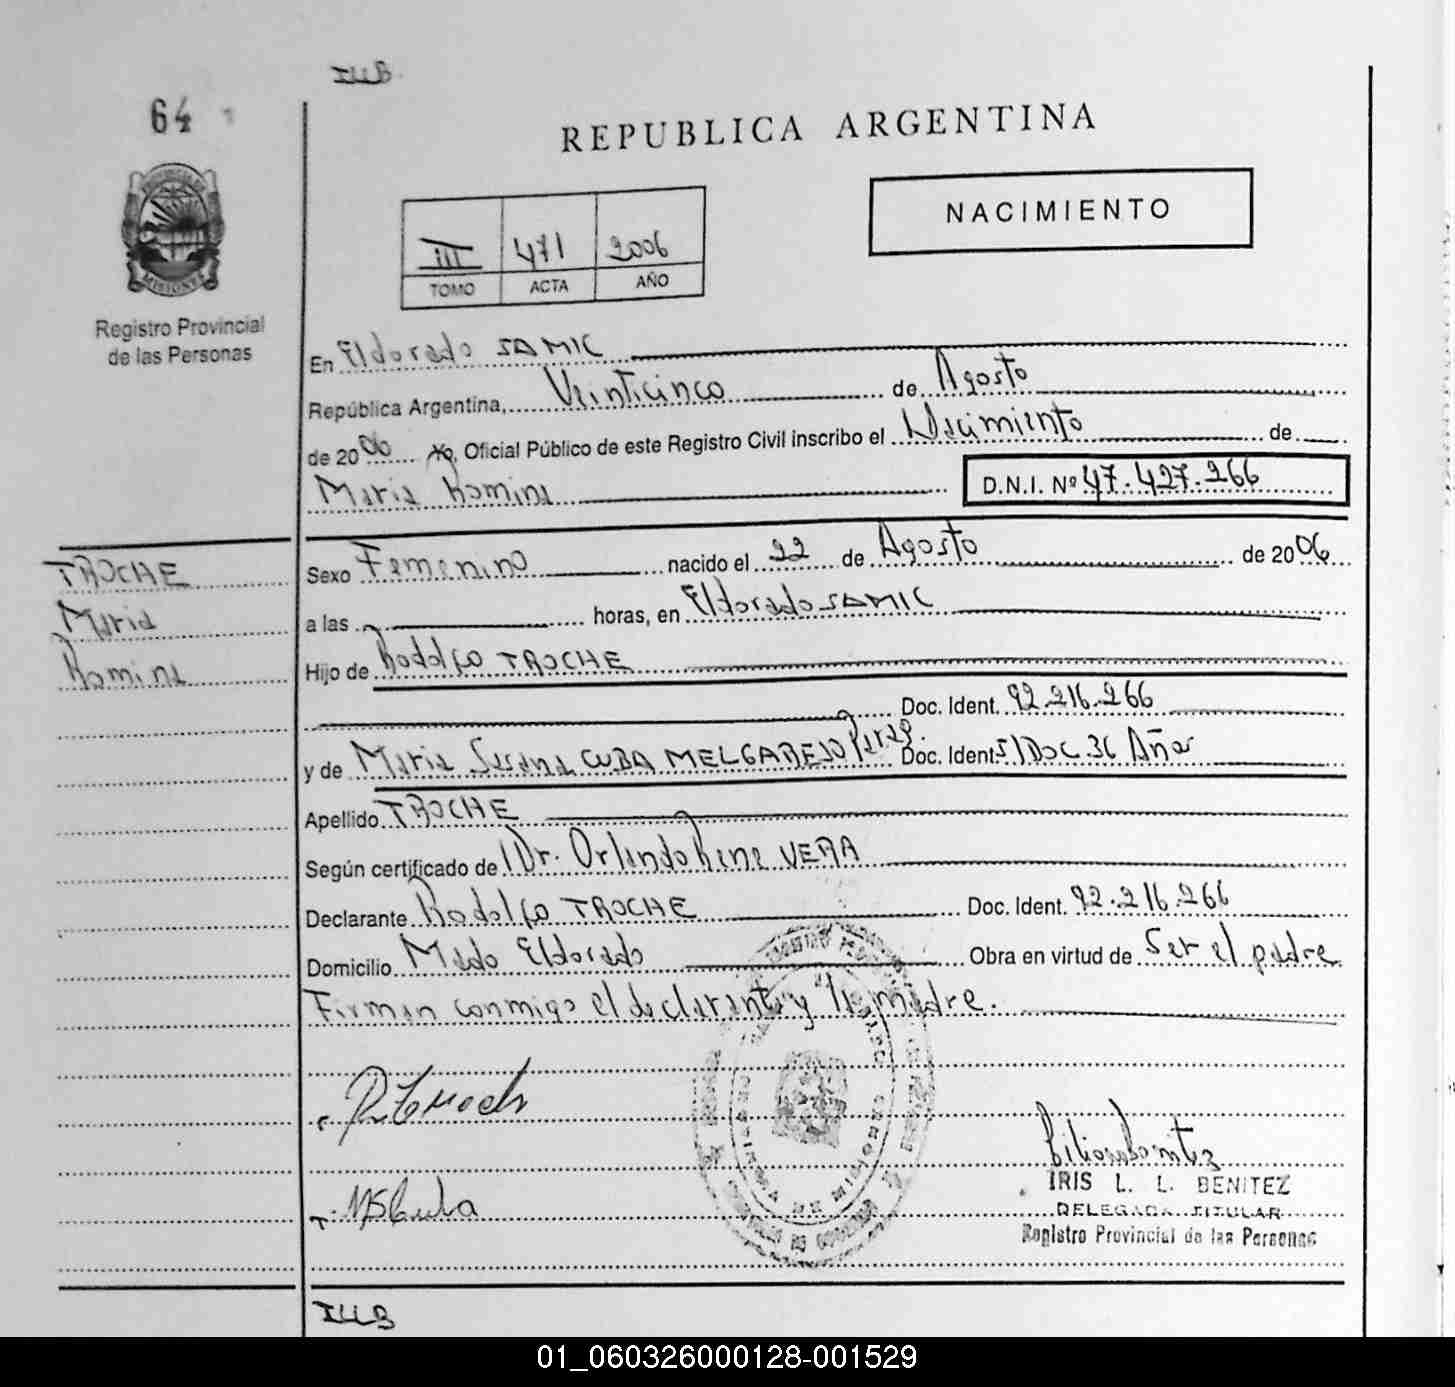 ILLB
64
REPUBLICA ARGENTINA
NACIMIENTO
III 471 2006
TOMO ACTA AÑO
MISIONES
Registro Provincial
de las Personas
En Eldorado SAMIC
República Argentina, Veinticinco de Agosto
de 2006 Yo, Oficial Público de este Registro Civil inscribo el Nacimiento de
Maria Romina D.N.I. Nº 47.427.266
TROCHE
Maria
Romina
Sexo Femenino nacido el 22 de Agosto de 2006
a las horas, en Eldorado SAMIC
Hijo de Rodolfo TROCHE
Doc. Ident. 92.216.266
y de Maria Susana CUBA MELGAREJO Parag. Doc. Ident. S/Doc 36 Años
Apellido TROCHE
Según certificado de Dr. Orlando Rene VERA
Declarante Rodolfo TROCHE Doc. Ident. 92.216.266
Domicilio Mado Eldorado Obra en virtud de Ser el padre
Firman conmigo el declarante y la madre.
IRIS L. L. BENITEZ
DELEGADA TITULAR
Registro Provincial de las Personas
ILLB
01_060326000128-001529